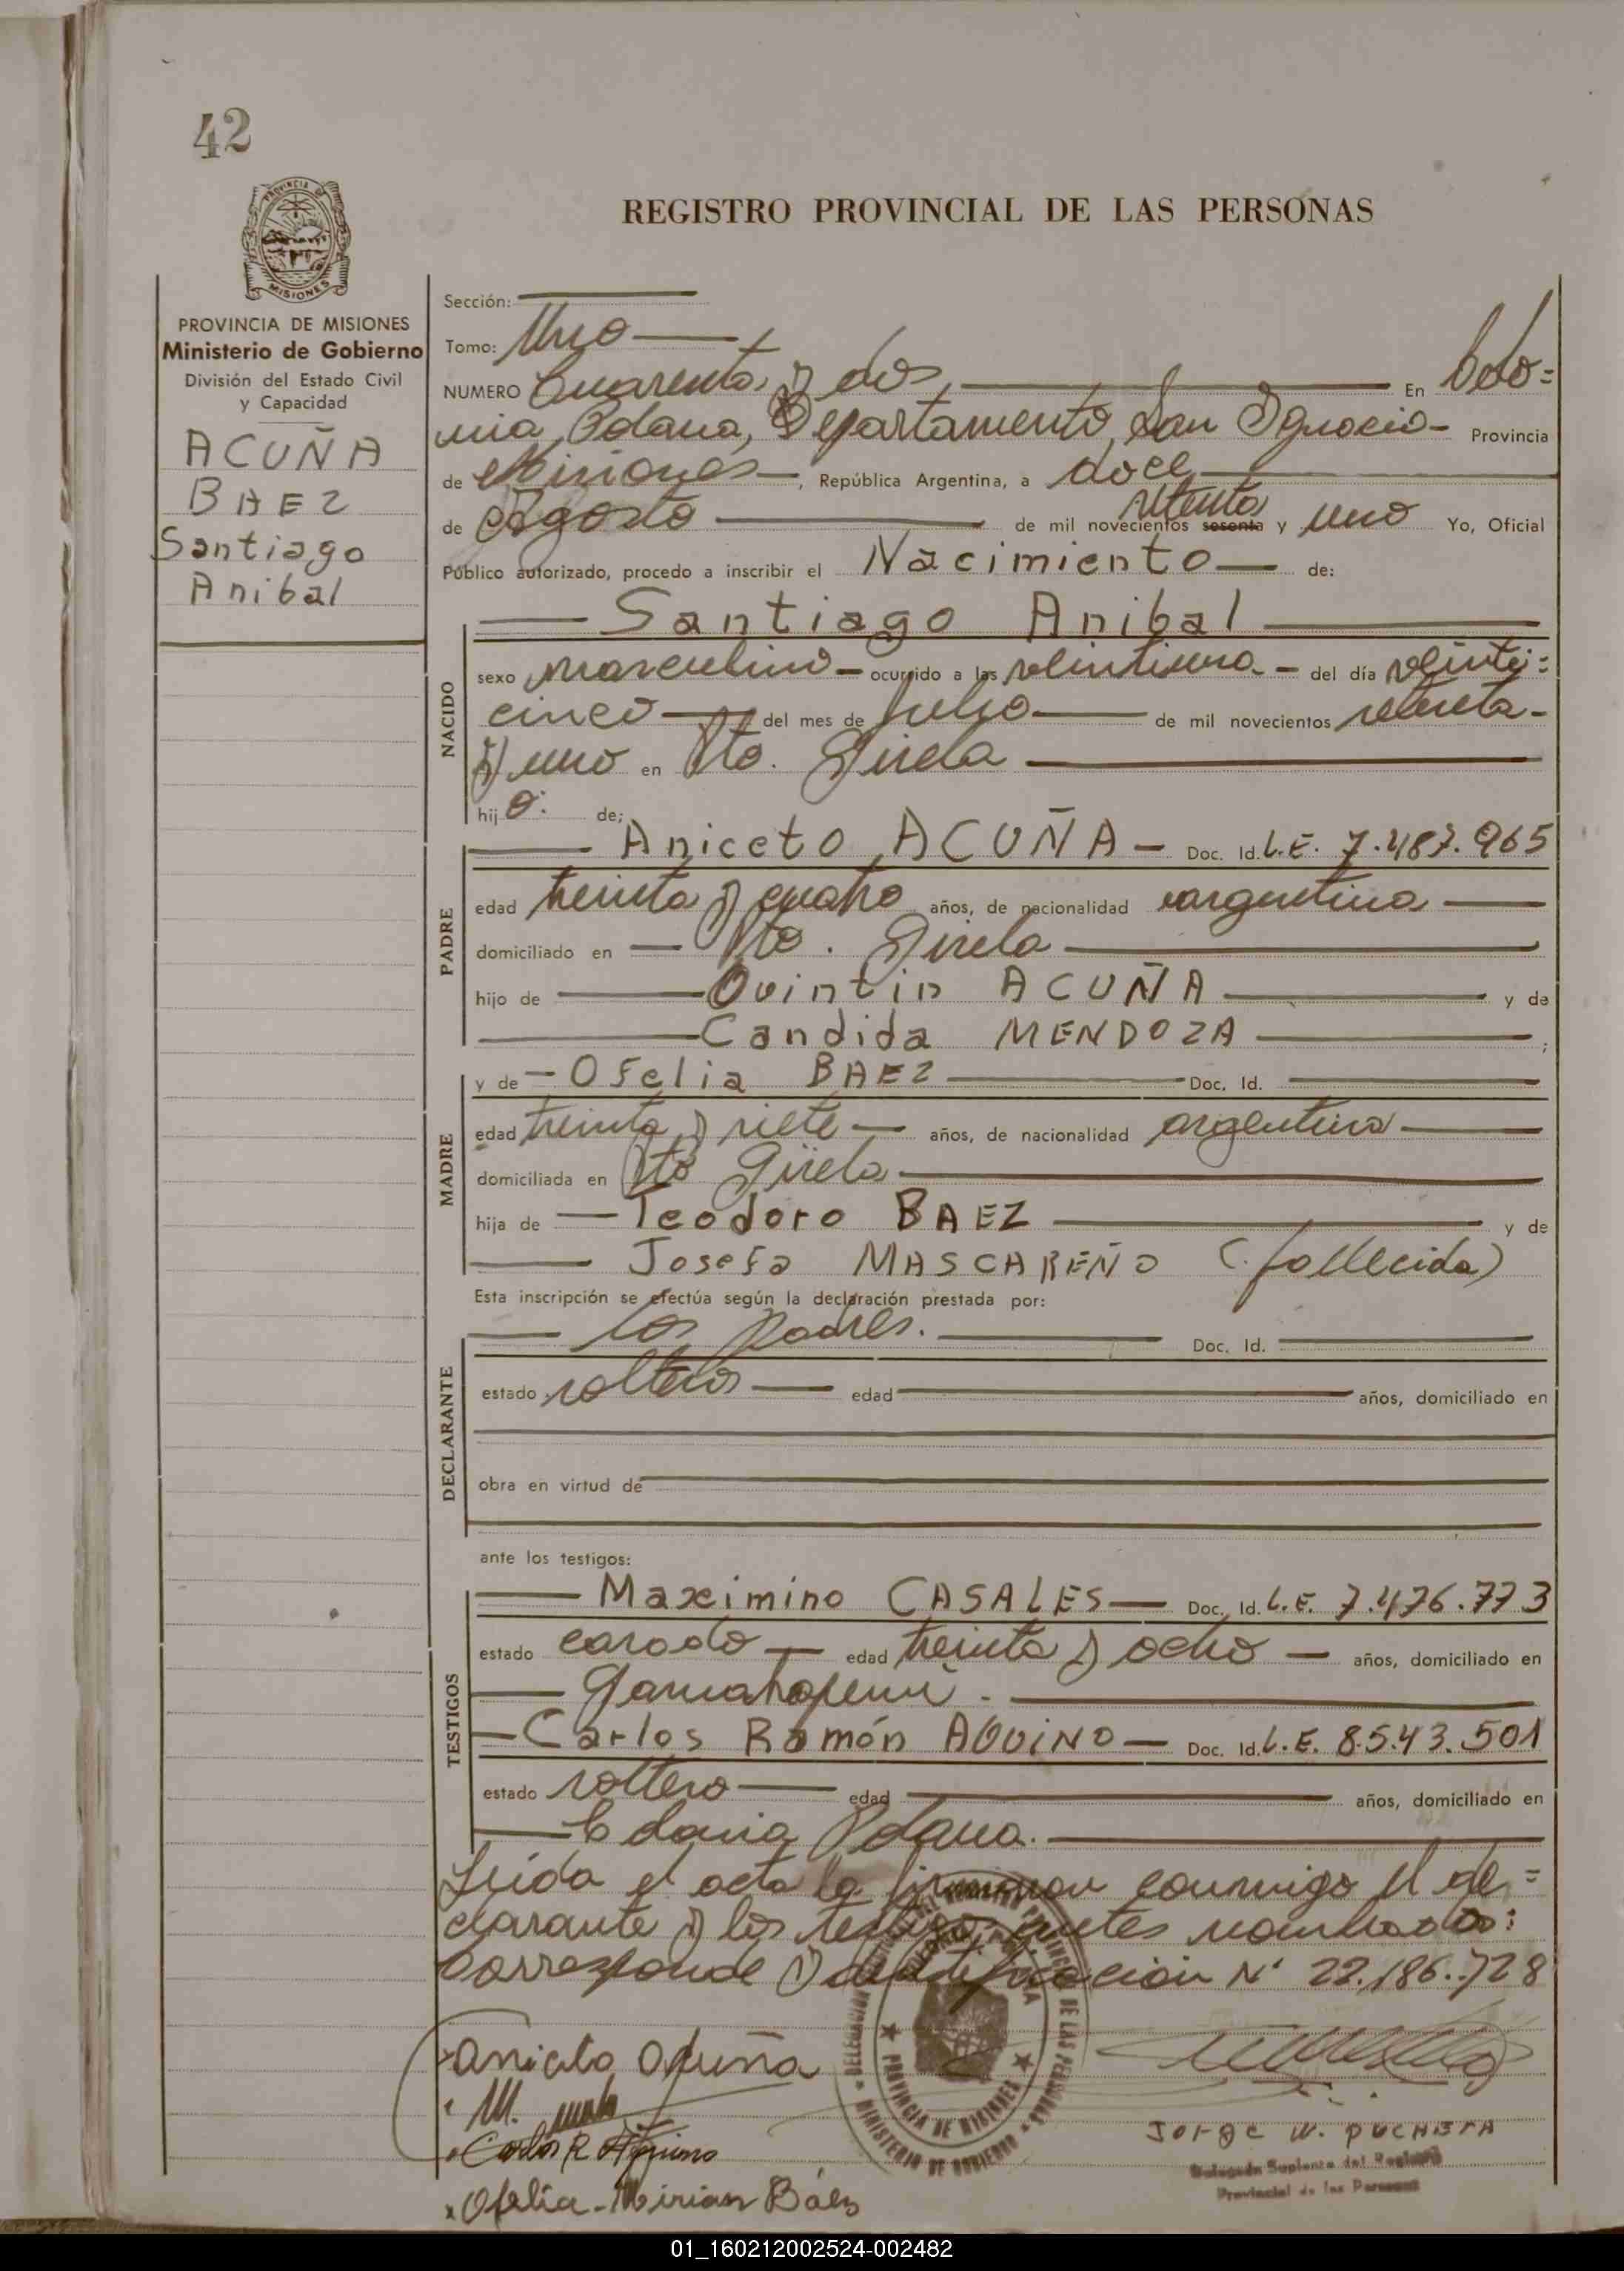 42
REGISTRO PROVINCIAL DE LAS PERSONAS
PROVINCIA DE
MISIONES
PROVINCIA DE MISIONES
Ministerio de Gobierno
División del Estado Civil
y Capacidad
ACUÑA
BAEZ
Santiago
Anibal
Sección:
Tomo: Uno
NUMERO Cuarenta y dos, En Colo=
nia Polana, Departamento San Ignacio- Provincia
de Misiones, República Argentina, a doce
de Agosto de mil novecientos sesenta setenta y uno Yo, Oficial
Público autorizado, procedo a inscribir el Nacimiento de:
Santiago Anibal
NACIDO
sexo masculino ocurrido a las veintiuna - del día veinti=
cinco del mes de Julio de mil novecientos setenta-
y uno en Pto. Gisela
hij o: de;
PADRE
Aniceto ACUÑA - Doc. Id. L.E. 7.487.965
edad treinta y cuatro años, de nacionalidad argentina
domiciliado en Pto. Gisela
hijo de Quintin ACUÑA y de
Candida MENDOZA ;
MADRE
y de - Ofelia BAEZ Doc. Id.
edad treinta y siete años, de nacionalidad argentina
domiciliada en Pto Gisela
hija de Teodoro BAEZ y de
Josefa MASCAREÑO (fallecida)
Esta inscripción se efectúa según la declaración prestada por:
DECLARANTE
los padres. Doc. Id.
estado solteros edad años, domiciliado en
obra en virtud de
ante los testigos:
TESTIGOS
Maximino CASALES Doc. Id. L.E. 7.476.773
estado casado edad treinta y ocho años, domiciliado en
Yamarapemi.
Carlos Ramón AQUINO Doc. Id. L.E. 8.543.501
estado soltero edad años, domiciliado en
Colonia Polana.
Leída el acta la firmaron conmigo el de=
clarante y los testigos antes nombrados:
Corresponde Identificación N° 22.186.728
PROVINCIA DE MISIONES
MINISTERIO DE GOBIERNO
Aniceto Acuña
M.
Carlos R Aquino
Ofelia-Mirian Báez
Jorge W. PUCHETA
Delegado Suplente del Registro
Provincial de las Personas
01_160212002524-002482